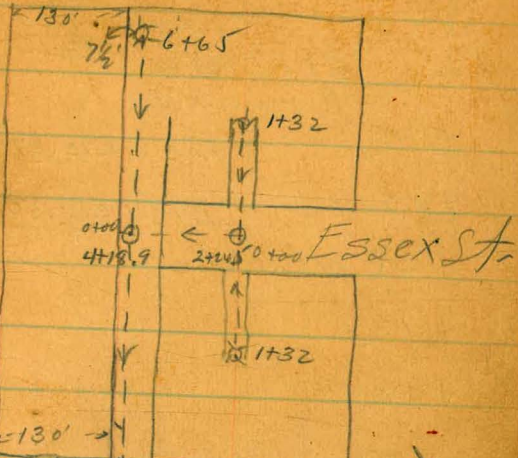 130'
7½' 6+65
1+32
0+00
4+18.9 0+00 Essex St.
1+32
130'